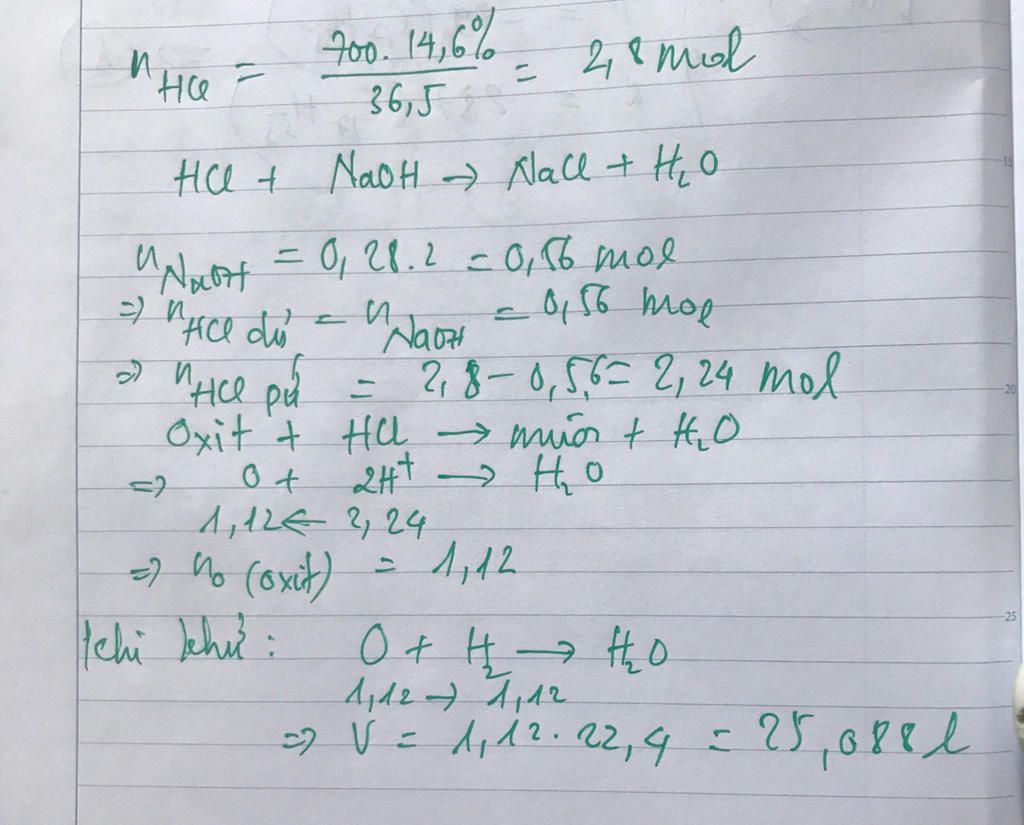 n HCl = 700. 14,6% / 36,5 = 2,8 mol
HCl + NaOH → NaCl + H₂O
n NaOH = 0,28.2 = 0,56 mol
⇒ n HCl dư = n NaOH = 0,56 mol
⇒ n HCl pứ = 2,8 – 0,56 = 2,24 mol
Oxit + HCl → muối + H₂O
⇒ O + 2H⁺ → H₂O
1,12 ← 2,24
⇒ nO (oxit) = 1,12
Khi khử: O + H₂ → H₂O
1,12 → 1,12
⇒ V = 1,12. 22,4 = 25,088 l
15
20
25